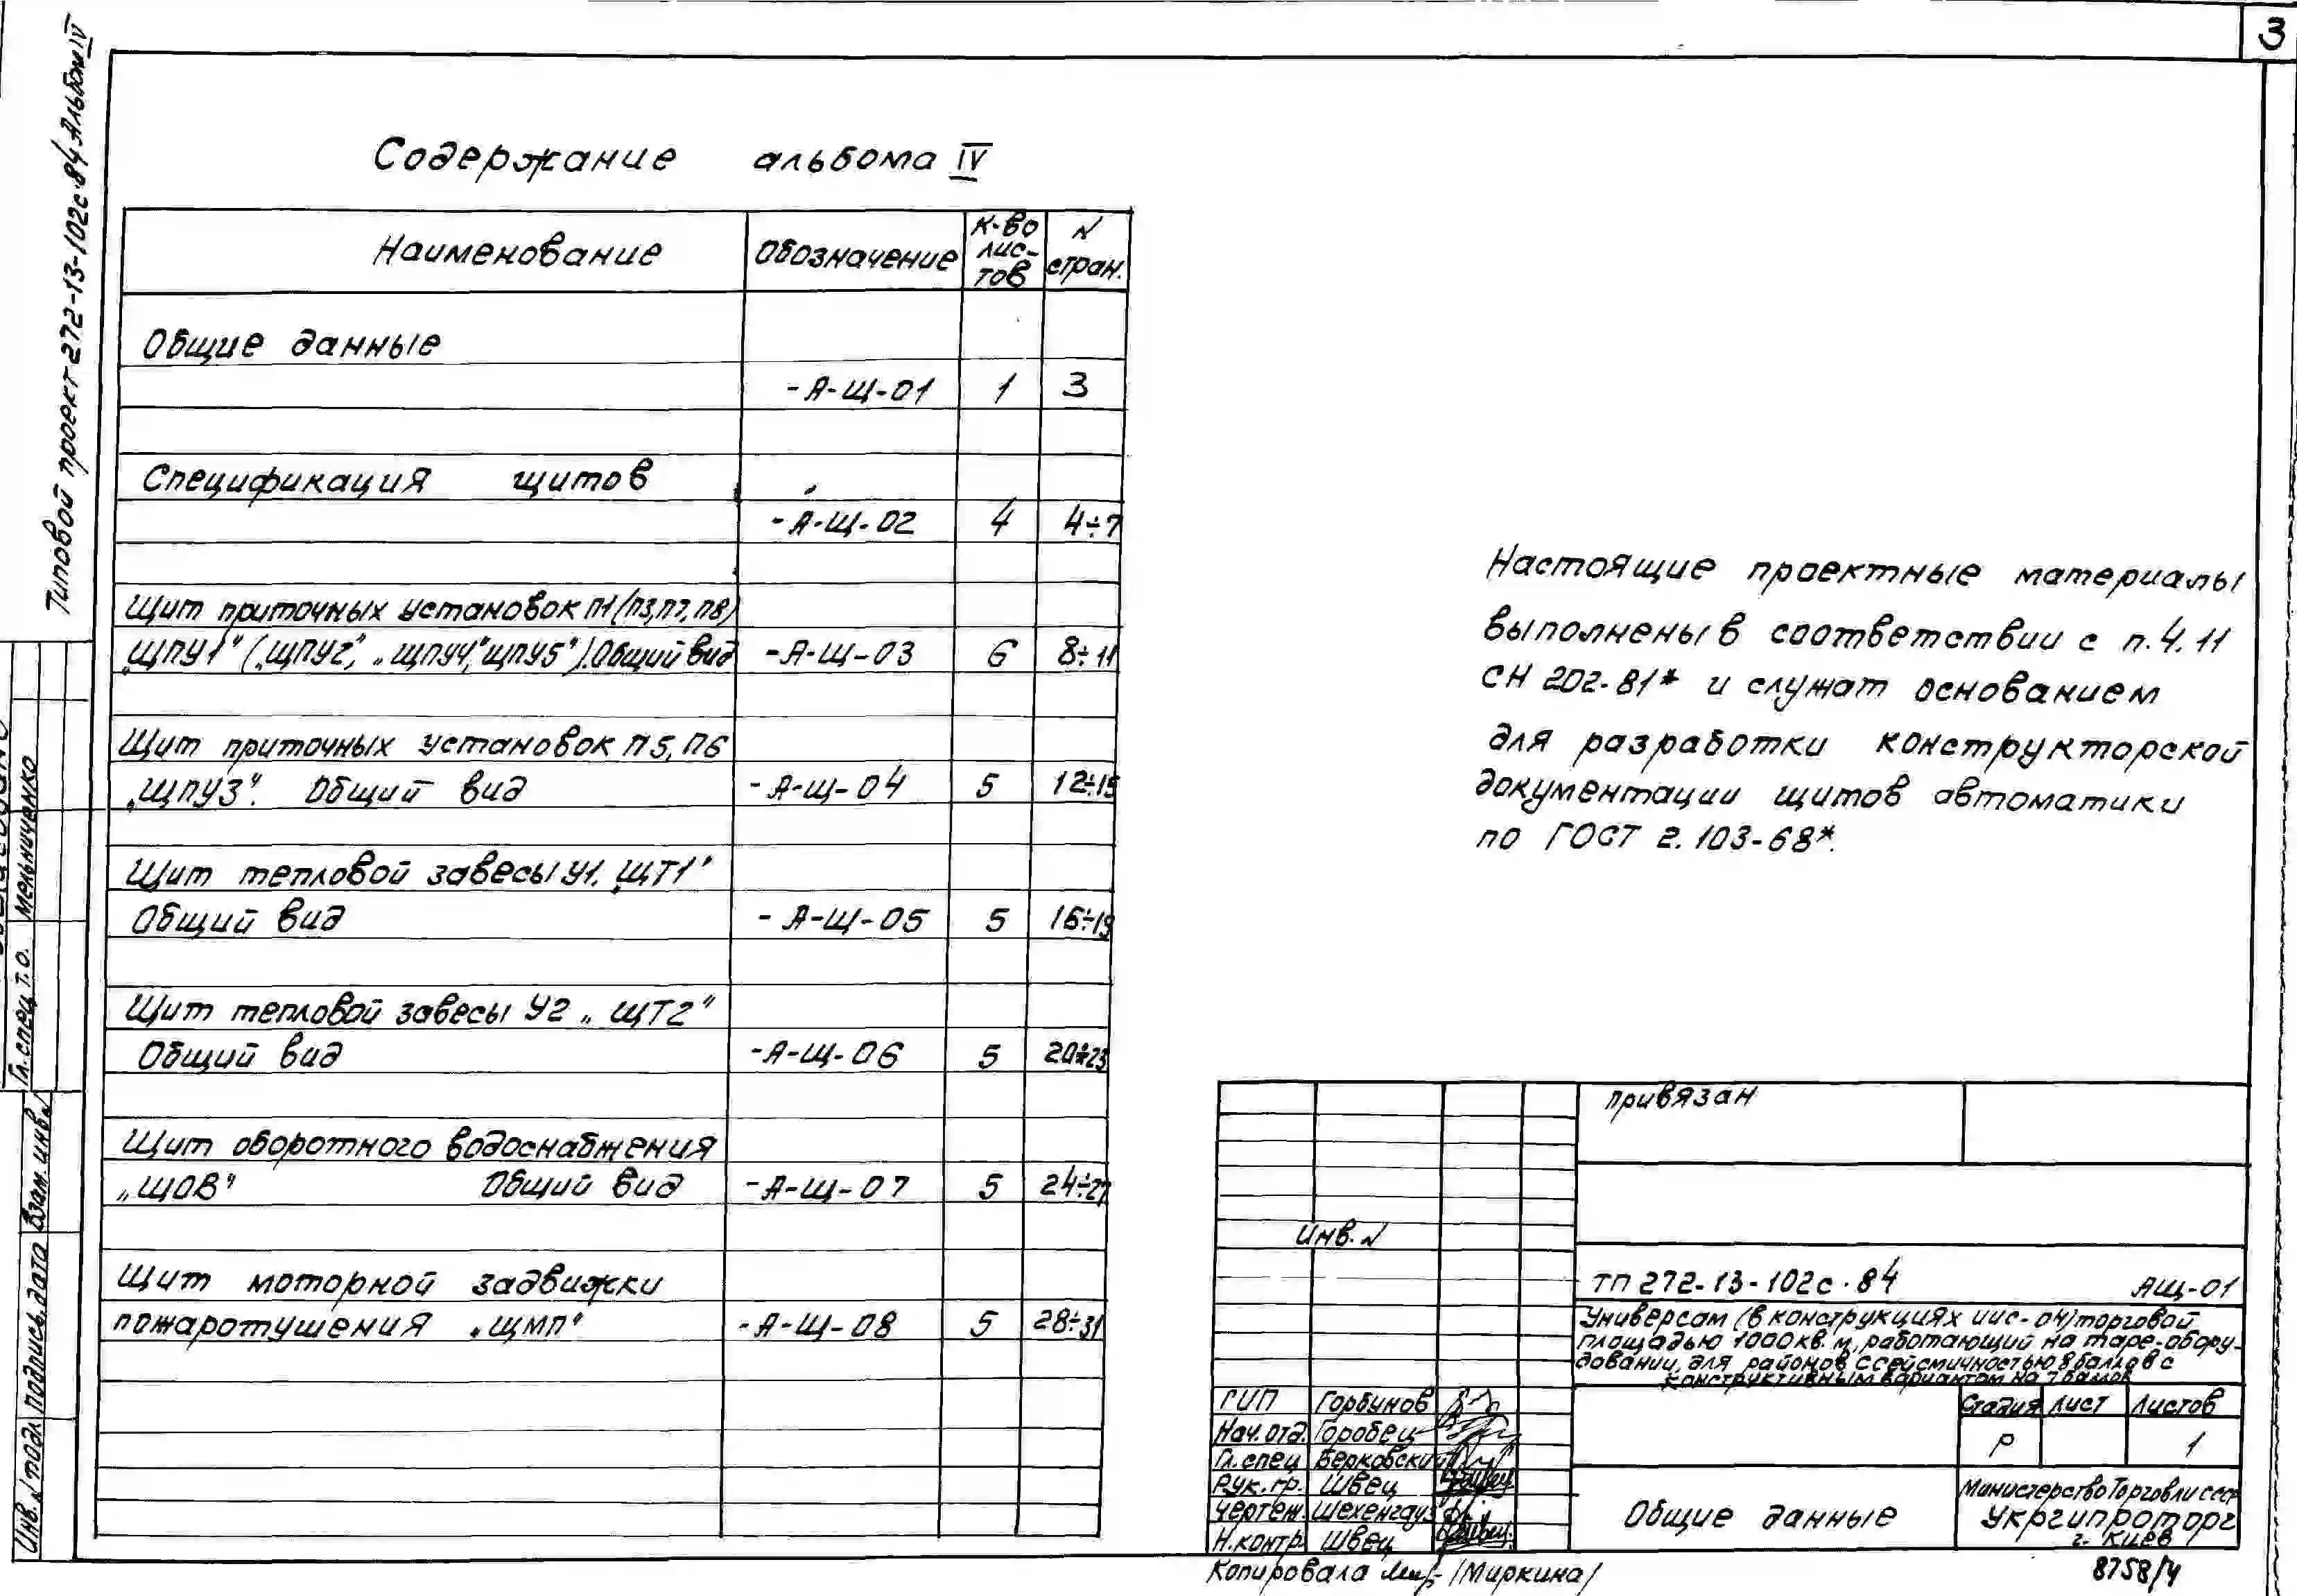 3
Типовой проект 272-13-102с.84 Альбом IV
Содержание альбома IV
Наименование Обозначение К-во лис-тов N стран.
Общие данные
-А-Щ-01 1 3
Спецификация щитов
-А-Щ-02 4 4÷7
Щит приточных установок П1 (П3, П7, П8)
„ЩПУ1" („ЩПУ2", „ЩПУ4", „ЩПУ5"). Общий вид -А-Щ-03 6 8÷11
Щит приточных установок П5, П6
„ЩПУ3". Общий вид -А-Щ-04 5 12÷15
Щит тепловой завесы У1. „ЩТ1"
Общий вид -А-Щ-05 5 16÷19
Щит тепловой завесы У2 „ЩТ2"
Общий вид -А-Щ-06 5 20÷23
Щит оборотного водоснабжения
„ЩОВ" Общий вид -А-Щ-07 5 24÷27
Щит моторной задвижки
пожаротушения „ЩМП" -А-Щ-08 5 28÷31
Настоящие проектные материалы
выполнены в соответствии с п. 4.11
СН 202-81* и служат основанием
для разработки конструкторской
документации щитов автоматики
по ГОСТ 2.103-68*.
Гл. спец. т.о. Мельниченко
Инв. N подл. Подпись, дата Взам. инв. N
Привязан
Инв. N
ТП 272-13-102с.84 АЩ-01
Универсам (в конструкциях ИИС-04) торговой
площадью 1000 кв. м, работающий на таре-обору-
довании, для районов с сейсмичностью 8 баллов с
конструктивным вариантом на 7 баллов
ГИП Горбунов
Нач. отд. Горобец
Гл. спец Берковский
Рук. гр. Швец
Чертеж. Шехенгауз
Н. контр. Швец
Стадия Лист Листов
Р 1
Общие данные
Министерство Торговли СССР
Укргипроторг
г. Киев
Копировала /Миркина/
8758/4